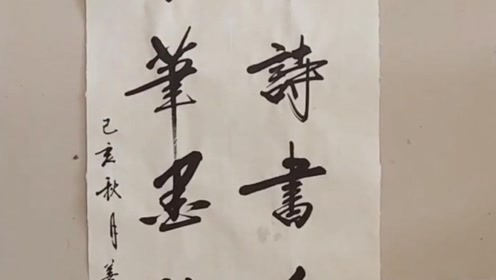 詩書
筆墨
己亥秋月